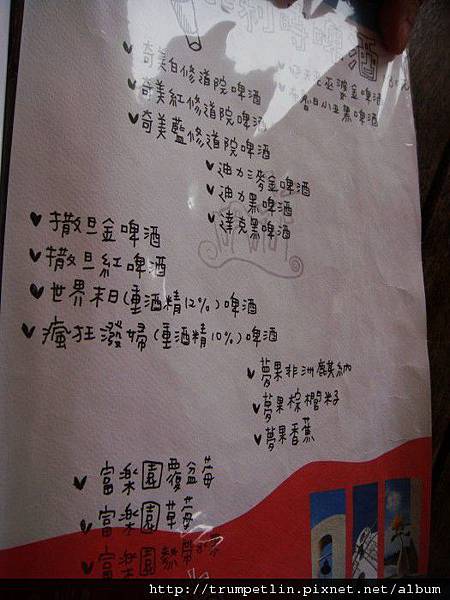 比利時啤酒
奇美白修道院啤酒
奇美紅修道院啤酒
奇美藍修道院啤酒
巫婆金啤酒
小丑黑啤酒
迪力三麥金啤酒
迪力黑啤酒
達克黑啤酒
撒旦金啤酒
撒旦紅啤酒
世界末日(重酒精12%)啤酒
瘋狂潑婦(重酒精10%)啤酒
夢果非洲麒納
夢果棕櫚籽
夢果香蕉
富樂園覆盆莓
富樂園草莓
富樂園熱帶
http://trumpetlin.pixnet.net/album